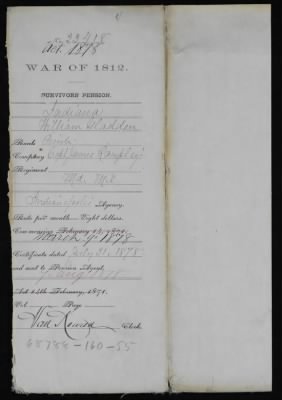 22418
Act. 1878
WAR OF 1812.
SURVIVORS PENSION.
Indiana
William Haddon
Rank Priv
Company Capt James
Regiment
Md. Mil
Indianapolis Agency.
Rate per month—Eight dollars.
Commencing February 14, 1871.
March 9 1878
Certificate dated July 31, 1878
and sent to Pension Agent,
Act 14th February, 1871.
Vol. Page
Clerk.